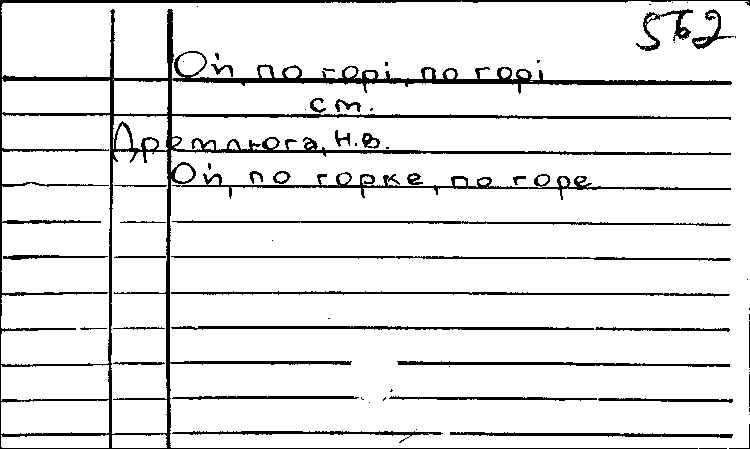 562
Ой, по горі, по горі
ст.
Дремлюга, Н.В.
Ой, по горке, по горе